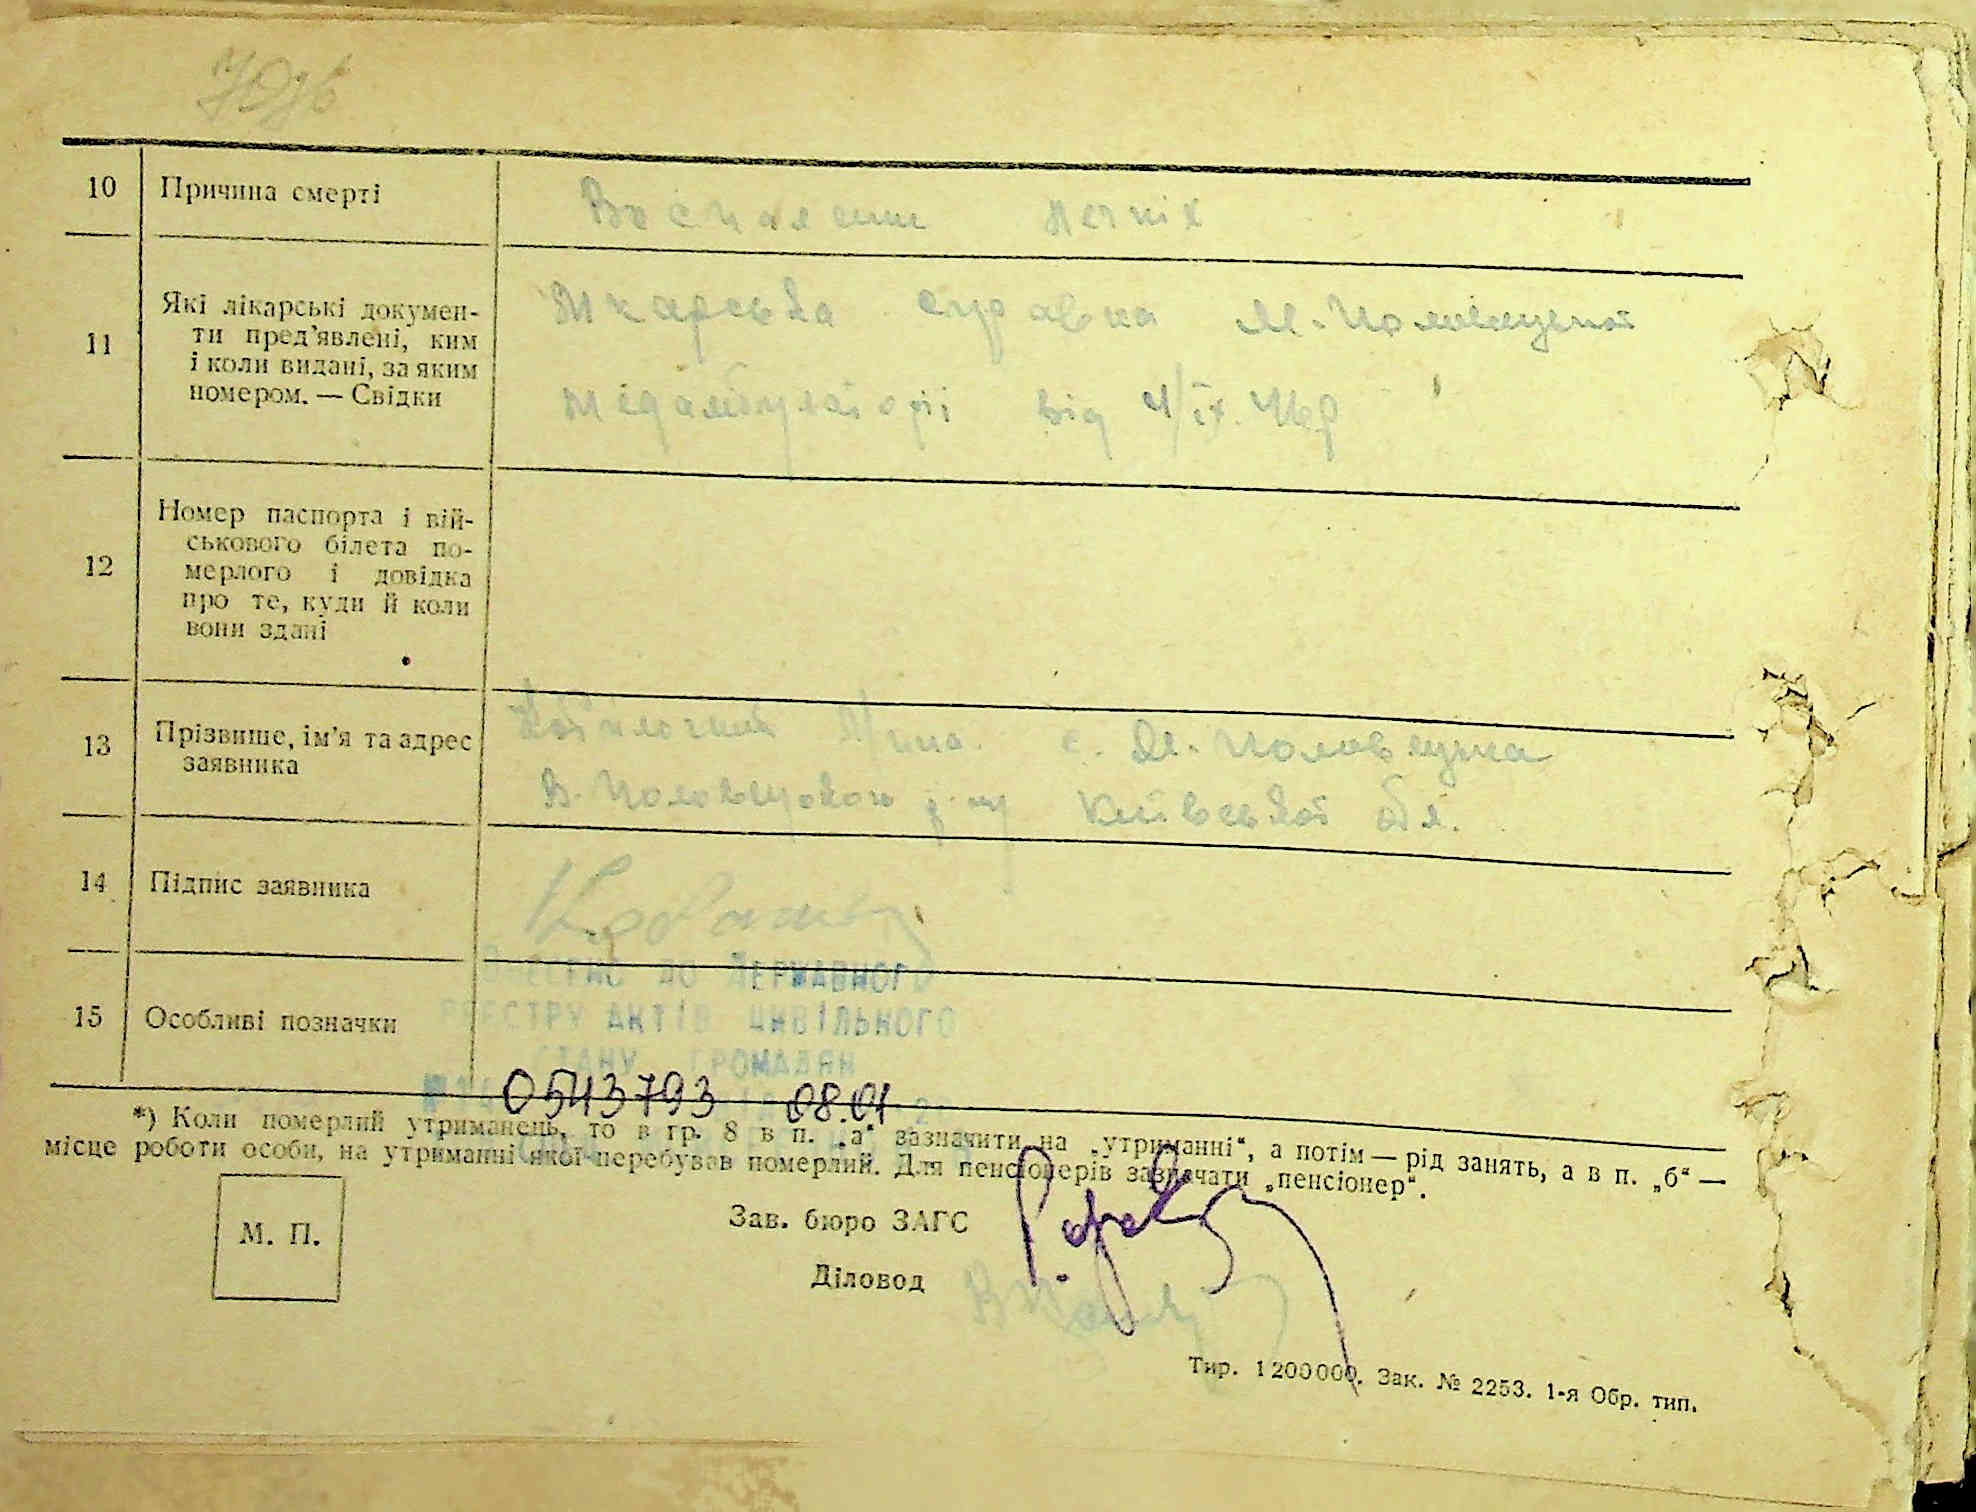 10 Причина смерті
Воспаление легкіх
11 Які лікарські докумен-
ти пред’явлені, ким
і коли видані, за яким
номером. — Свідки
справка М-Половецької
медамбулаторії від
12 Номер паспорта і вій-
ськового білета по-
мерлого і довідка
про те, куди й коли
вони здані
13 Прізвише, ім’я та адрес
заявника
с. М-Половецка
В-Половецкого р-ну Київської обл.
14 Підпис заявника
15 Особливі позначки
ВНЕСЕНО ДО ДЕРЖАВНОГО
РЕЄСТРУ АКТІВ ЦИВІЛЬНОГО
СТАНУ ГРОМАДЯН
0543793 08.01
*) Коли померлий утриманець, то в гр. 8 в п. „а“ зазначити на „утриманні“, а потім — рід занять, а в п. „б“ —
місце роботи особи, на утриманні якої перебував померлий. Для пенсіонерів зазначати „пенсіонер“.
М. П.
Зав. бюро ЗАГС
Діловод
Тир. 1200000. Зак. № 2253. 1-я Обр. тип.